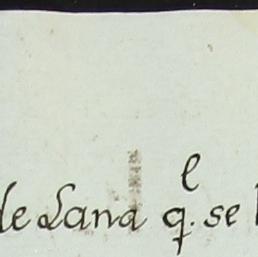 de Lana q.^e se